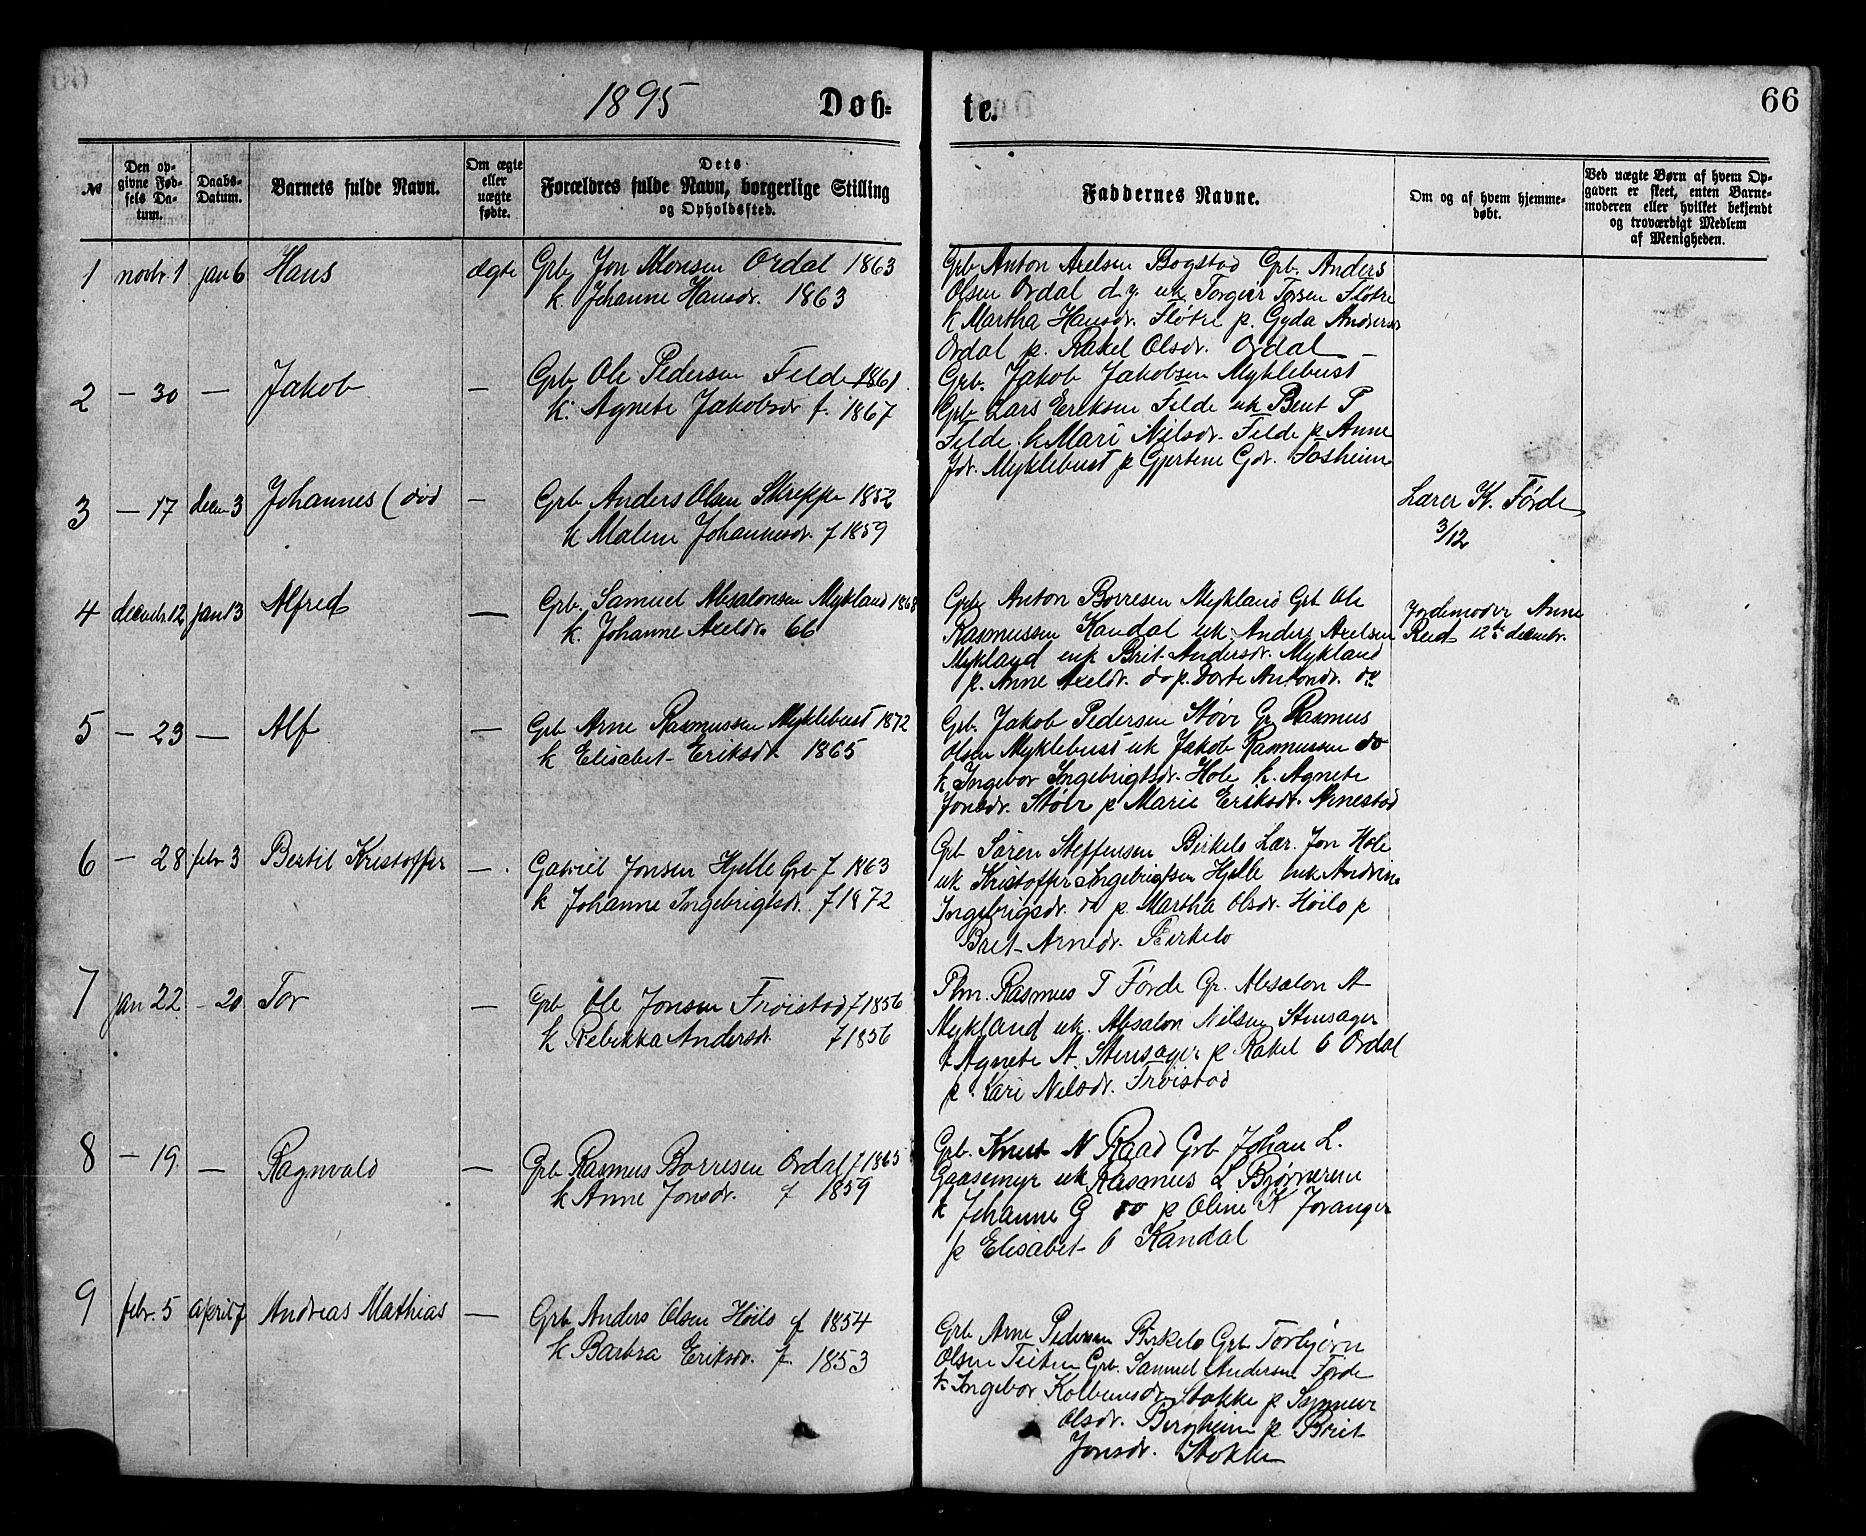 1895 Døb- te. 66
№
Den op-
givne Fød-
sels Da-
tum.
Daabs-
Datum.
Barnets fulde Navn.
Om ægte
eller
uægte
fødte.
Dets
Forældres fulde Navn, borgerlige Stilling
og Opholdssted.
Faddernes Navne.
Om og af hvem hjemme-
døbt.
Ved uægte Børn af hvem Op-
gaven er skeet, enten Barne-
moderen eller hvilket bekjendt
og troværdigt Medlem
af Menigheden.
1 novbr 1 jan 6 Hans ægte Grb Jon Monsen Ordal 1863
k Johanne Hansdr. 1863
Grb Anton Axelsen Bogstad Grb. Anders
Olsen Ordal d.y. uk Torgeir Torsen Fløtre
k Martha Hansdr. Fløtre p. Gyda Andersdr
Ordal p. Rakel Olsdr. Ordal
2 – 30 — Jakob — Grb Ole Pedersen Felde 1861.
k. Agnete Jakobsdr f. 1867
Grb. Jakob Jakobsen Myklebust
Grb Lars Eriksen Felde uk Bent P
Felde. k Mari Nilsdr. Felde p Anne
Jdr. Myklebust p Gjertine Gdr. Fosheim
3 – 17 decem 3 Johannes (død — Grb Anders Olsen Skreppe 1852
k Malene Johannesdr. f 1859
Lærer K. Førde
3/12
4 decembr. 12 jan 13 Alfred — Grb. Samuel Absalonsen Mykland 1868
k. Johanne Axeldr. 66
Grb. Anton Børresen Mykland Grb Ole
Rasmussen Kandal uk. Anders Axelsen
Mykland enk Brit Andersdr. Mykland
p. Anne Axeldr. do p. Dorte Antondr. do
Jordemoder Anne
Reed 12te decembr.
5 – 23 — Alf — Grb Arne Rasmussen Myklebust 1872
k Elisabet Eriksdr. 1865
Grb. Jakob Pedersen Støve Gr Rasmus
Olsen Myklebust uk Jakob Rasmussen do
k Ingebor Ingebrigtsdr. Hole k. Agnete
Jonsdr. Støve p Marie Eriksdr. Arnestad
6 – 28 febr 3 Bertil Kristoffer —. Gabriel Jonsen Hjelle Grb f 1863
k Johanne Ingebrigtsdr. f 1872
Grb Søren Steffensen Birkelo Lær. Jon Hole
uk Kristoffer Ingebrigtsen Hjelle enk Andrine
Ingebrigsdr. do p. Martha Olsdr. Höilo p
Brit Arnedr. Birkelo
7 jan 22 – 20 Tor — Grb Ole Jonsen Frøistad f 1856
k Rebekka Andersdr. f 1856
Plm. Rasmus T Förde Gr. Absalon A
Mykland uk. Absalon Nilsen Stensager
k Agnete A. Stensager p. Rakel O Ordal
p. Kari Nilsdr. Frøistad
8 – 19 — Ragnvald — Grb Rasmus Børresen Ordal f 1865
k Anne Jonsdr. f 1859
Grb. Knut N Raad Grb Johan L.
Gaasemyr uk Rasmus L Bjørnereim
k Johanne G do p Oline K Joranger
p Elisabet O Kandal
9 febr. 5 april 7 Andreas Mathias — Grb Anders Olsen Höilo f 1854
k Barbra Eriksdr. f. 1853
Grb Arne Pedersen Birkelo Grb Torbjørn
Olsen Teiten Grb. Samuel Andersen Førde
k Ingebor Kolbeinsdr Stokke p Synneve
Olsdr. Bergheim p Brit
Jonsdr. Stokke